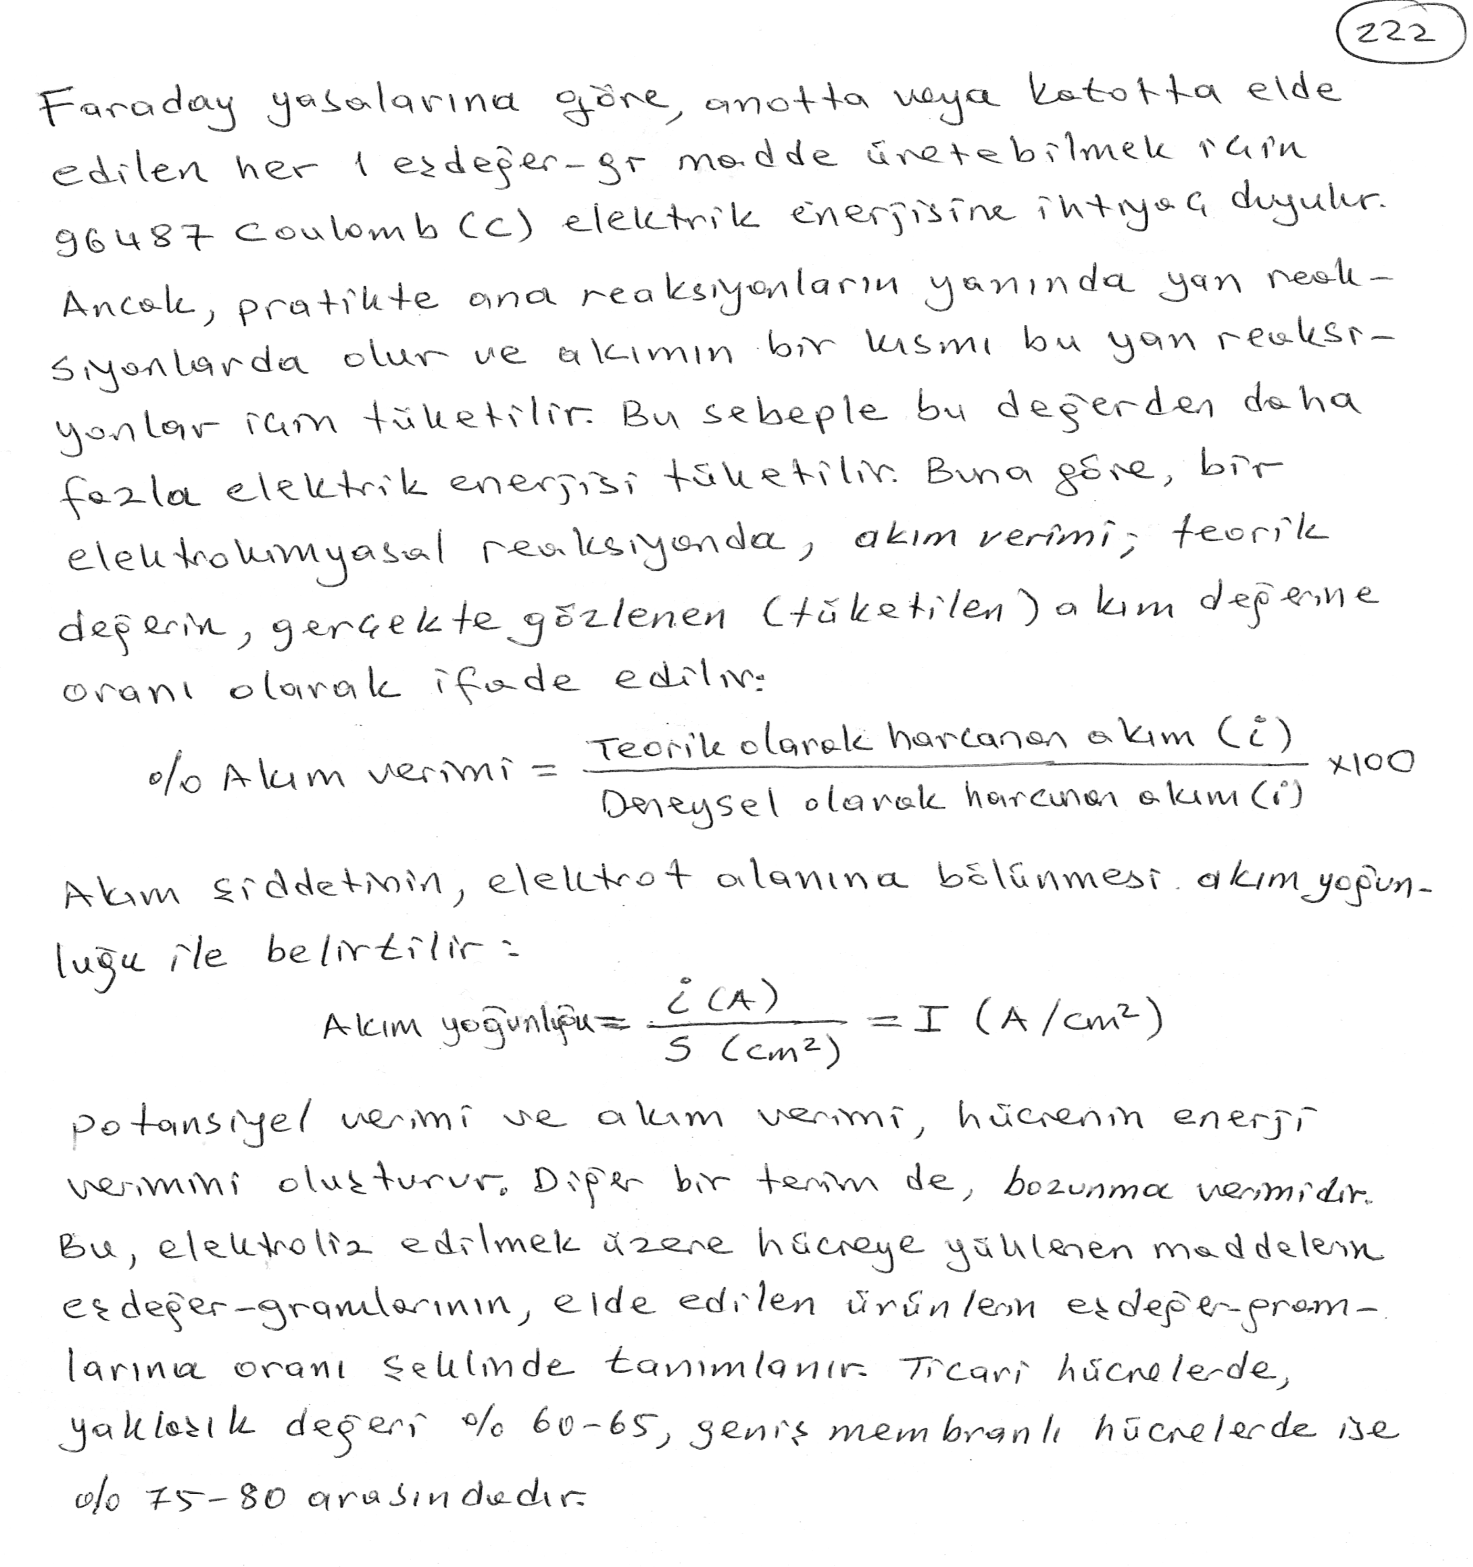 222
Faraday yasalarına göre, anotta veya katotta elde
edilen her 1 eşdeğer-gr madde üretebilmek için
96487 Coulomb (C) elektrik enerjisine ihtiyaç duyulur.
Ancak, pratikte ana reaksiyonların yanında yan reak-
siyonlarda olur ve akımın bir kısmı bu yan reaksi-
yonlar için tüketilir. Bu sebeple bu değerden daha
fazla elektrik enerjisi tüketilir. Buna göre, bir
elektrokimyasal reaksiyonda, akım verimi; teorik
değerin, gerçekte gözlenen (tüketilen) akım değerine
oranı olarak ifade edilir:
% Akım verimi = Teorik olarak harcanan akım (i) / Deneysel olarak harcanan akım (i) x100
Akım şiddetinin, elektrot alanına bölünmesi akım yoğun-
luğu ile belirtilir:
Akım yoğunluğu = i (A) / S (cm²) = I (A/cm²)
Potansiyel verimi ve akım verimi, hücrenin enerji
verimini oluşturur. Diğer bir terim de, bozunma verimidir.
Bu, elektroliz edilmek üzere hücreye yüklenen maddelerin
eşdeğer-gramlarının, elde edilen ürünlerin eşdeğer-gram-
larına oranı şeklinde tanımlanır. Ticari hücrelerde,
yaklaşık değeri % 60-65, geniş membranlı hücrelerde ise
% 75-80 arasındadır.